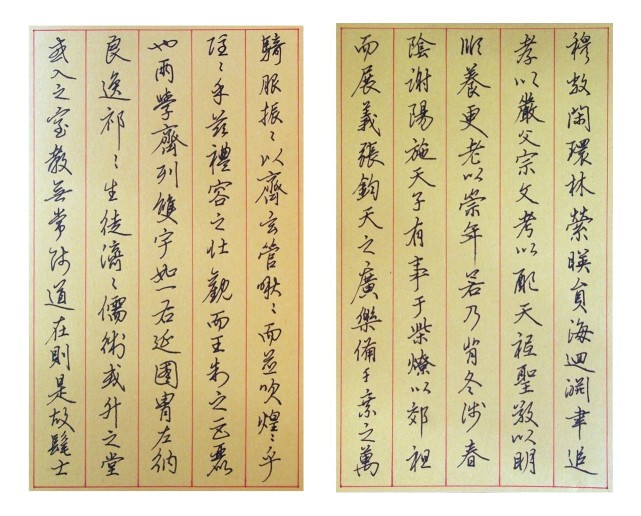 穆敞閑環林縈暎員海迴淵聿追
孝以嚴父宗文考以配天祗聖敬以明
順養更老以崇年若乃背冬涉春
陰謝陽施天子有事于柴燎以郊祖
而展義張鈞天之廣樂備千乘之萬
騎服振〻以齊玄管啾〻而並吹煌〻乎
隱〻乎茲禮容之壯觀而王制之巨麗
也兩學齊列雙宇如一右延國冑左納
良逸祁〻生徒濟〻儒術或升之堂
或入之室教無常師道在則是故髦士